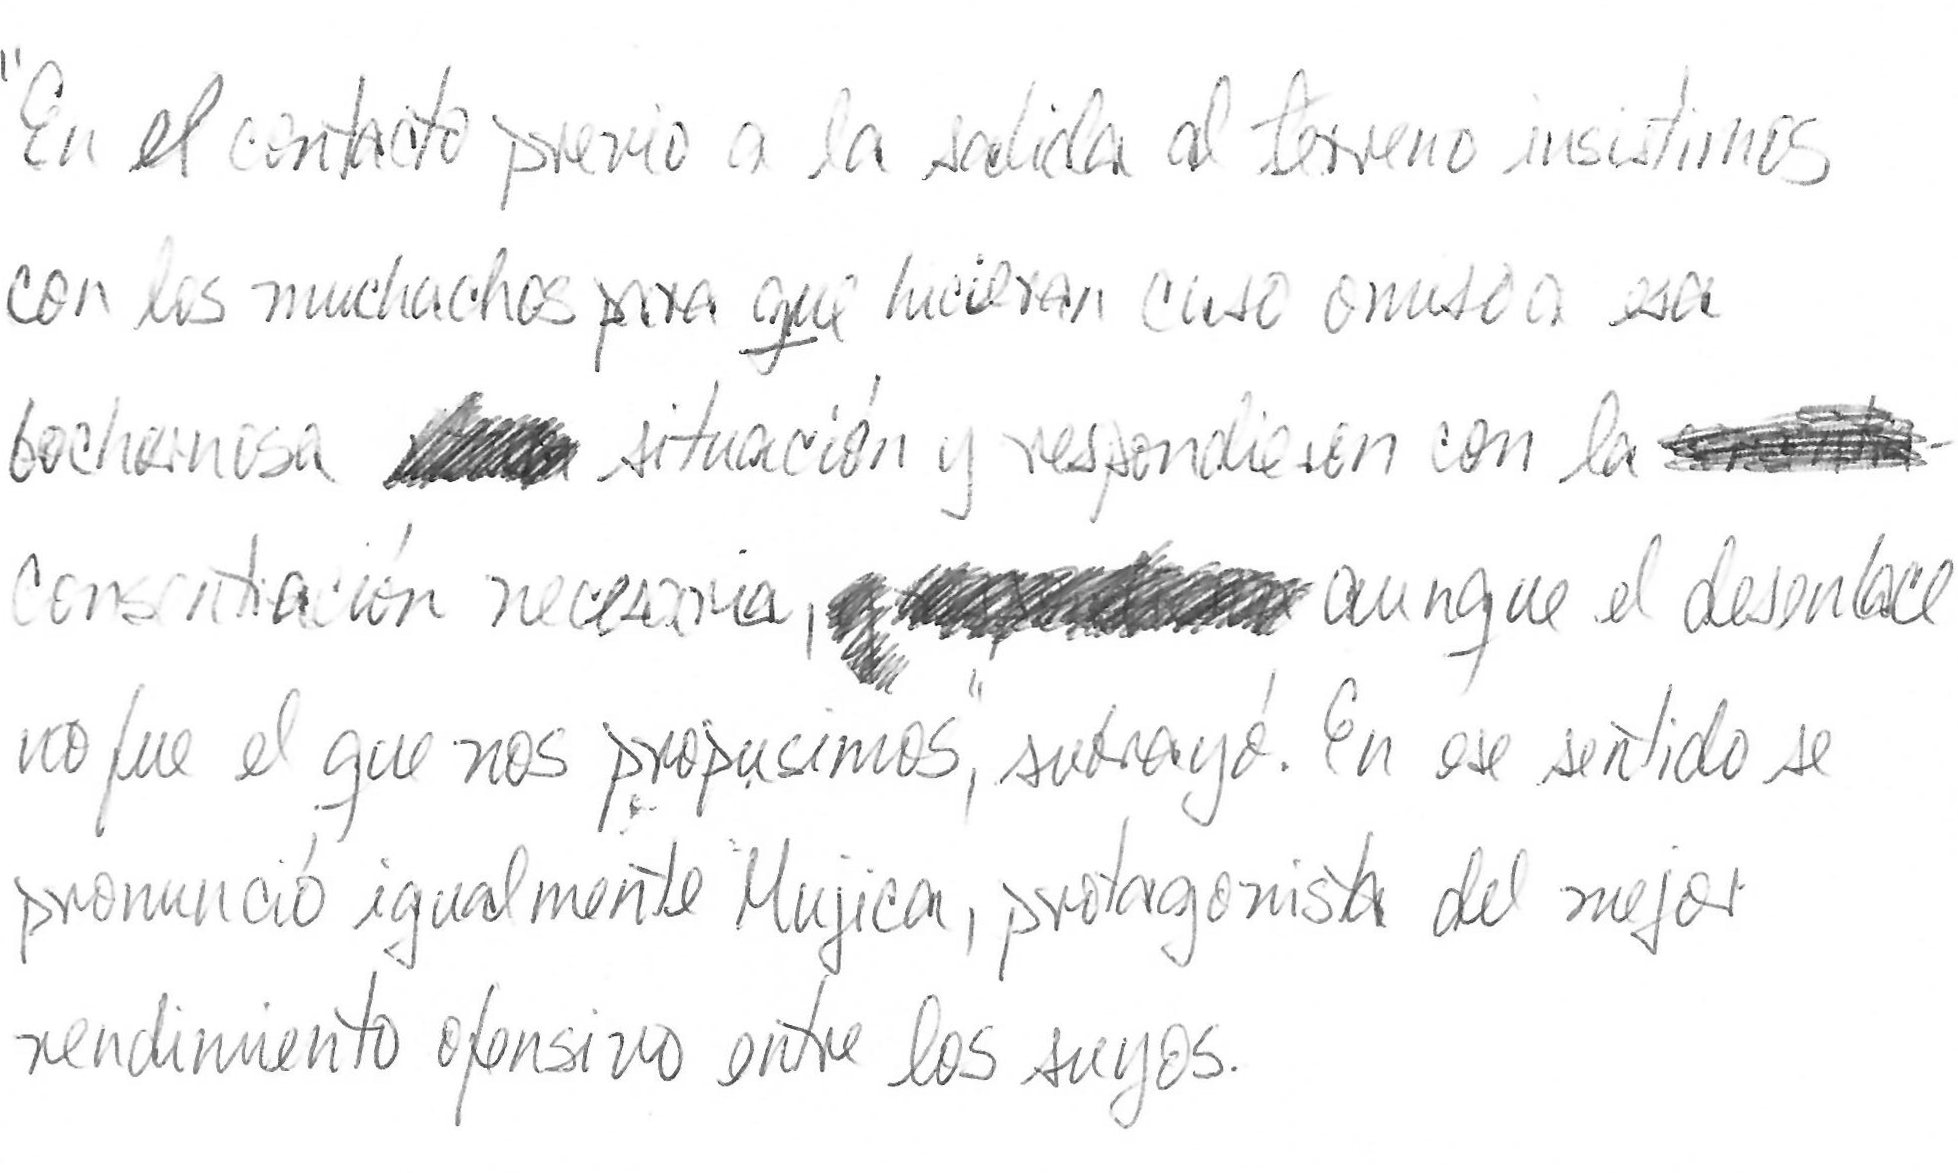 "En el contacto previo a la salida al terreno insistimos
con los muchachos para que hicieran caso omiso a esa
bochornosa situación y respondieron con la
consentiación necesaria, aunque el desenlace
no fue el que nos propusimos", subrayó. En ese sentido se
pronunció igualmente Mujica, protagonista del mejor
rendimiento ofensivo entre los suyos.